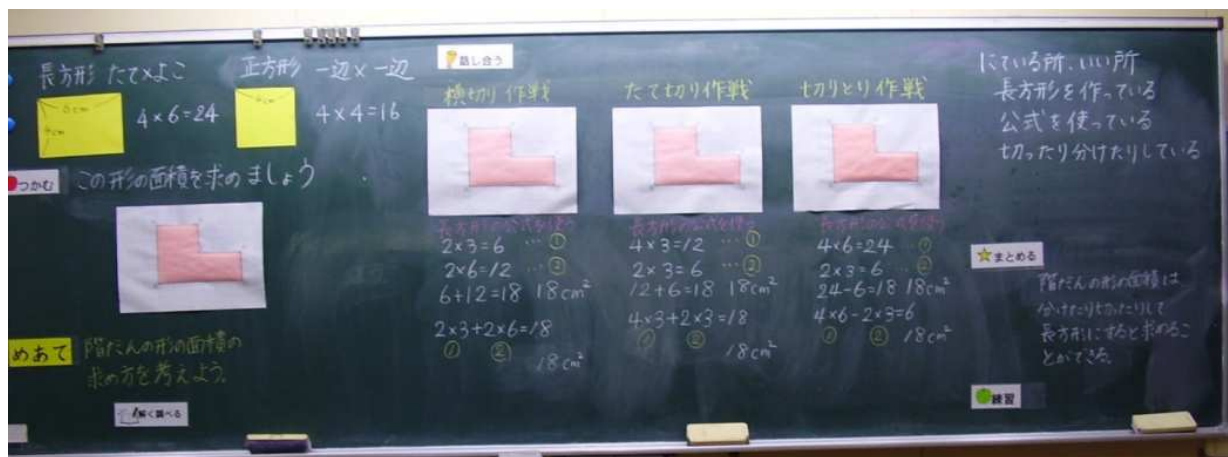 長方形 たて×よこ
6cm
4cm
4×6=24
正方形 一辺×一辺
4cm
4×4=16
つかむ
この形の面積を求めましょう
めあて
階だんの形の面積の
求め方を考えよう。
解く調べる
話し合う
横切り作戦
長方形の公式を使う
2×3=6 … ①
2×6=12 … ②
6+12=18 18cm²
2×3+2×6=18
① ②
18cm²
たて切り作戦
長方形の公式を使う
4×3=12 … ①
2×3=6 … ②
12+6=18 18cm²
4×3+2×3=18
① ②
18cm²
切りとり作戦
長方形の公式を使う
4×6=24 ①
2×3=6 … ②
24-6=18 18cm²
4×6-2×3=6
① ② 18cm²
にている所、いい所
長方形を作っている
公式を使っている
切ったり分けたりしている
まとめる
階だんの形の面積は
分けたり切ったりして
長方形にすると求めるこ
とができる。
練習